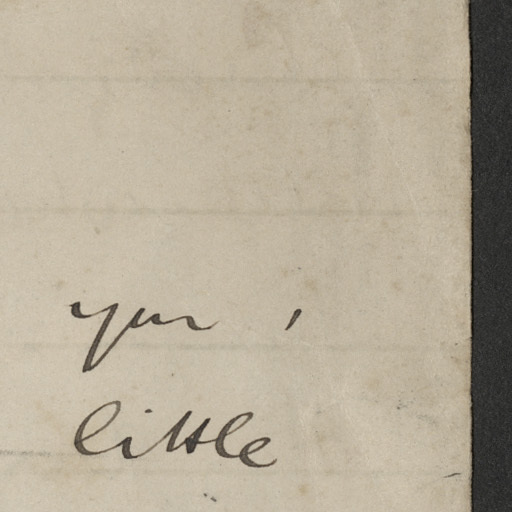 your,
little